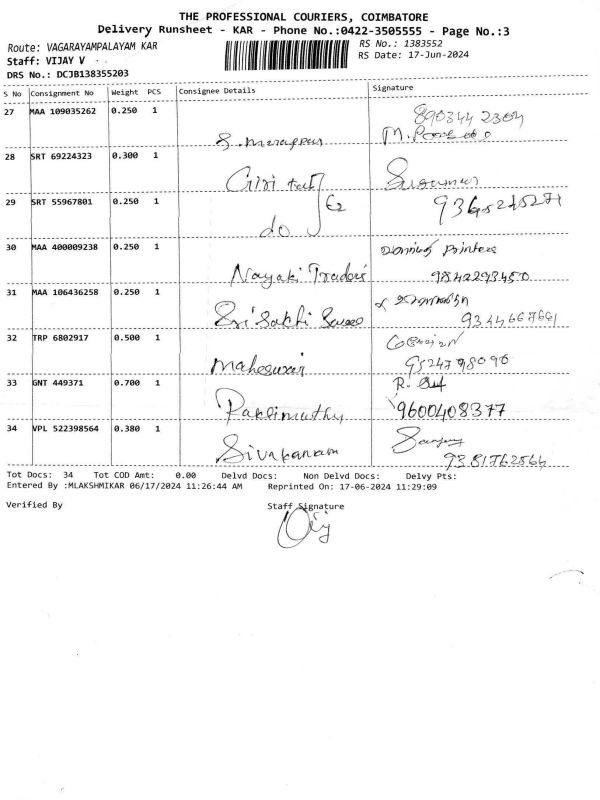 THE PROFESSIONAL COURIERS, COIMBATORE
Delivery Runsheet - KAR - Phone No.:0422-3505555 - Page No.:3
Route: VAGARAYAMPALAYAM KAR
RS No.: 1383552
Staff: VIJAY V
RS Date: 17-Jun-2024
DRS No.: DCJB138355203
S No Consignment No Weight PCS Consignee Details Signature
27 MAA 109035262 0.250 1
28 SRT 69224323 0.300 1 Giri tex
29 SRT 55967801 0.250 1 do
30 MAA 400009238 0.250 1 Nayaki Traders Printers
9842293450
31 MAA 106436258 0.250 1 Sri Sakthi
32 TRP 6802917 0.500 1 Maheswari
9524798090
33 GNT 449371 0.700 1 R.
9600408377
34 VPL 522398564 0.380 1
Tot Docs: 34 Tot COD Amt: 0.00 Delvd Docs: Non Delvd Docs: Delvy Pts:
Entered By :MLAKSHMIKAR 06/17/2024 11:26:44 AM Reprinted On: 17-06-2024 11:29:09
Verified By Staff Signature